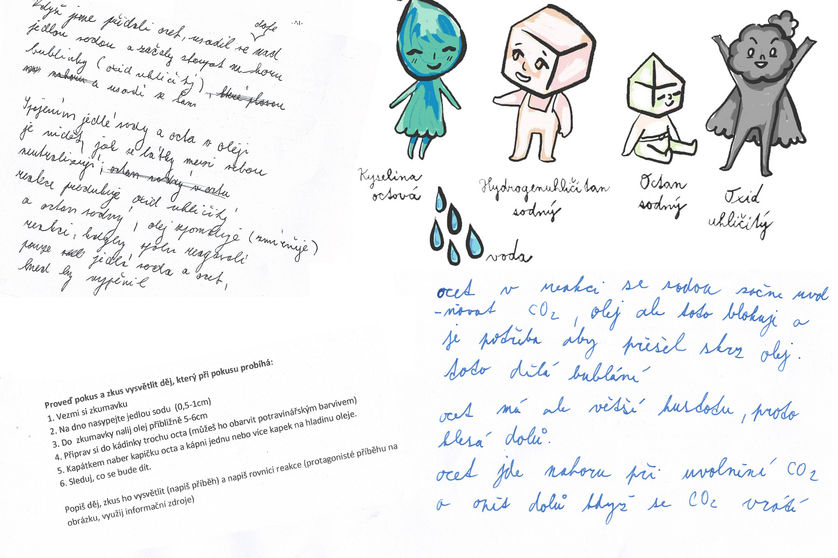 Když jsme přidali ocet, usadil se nad
dole
jedlou sodou a začaly stoupat na horu
bublinky (oxid uhličitý),
nahoru a usadí se tam
Spojením jedlé sody a octa v oleji
je vidět, jak se látky mezi sebou
neutralizují,
reakce produkuje oxid uhličitý
a octan sodný, olej zpomaluje (zmírňuje)
reakci, kdyby spolu reagovali
pouze jedlá soda a ocet,
hned by vypěnil
Kyselina
octová
Hydrogenuhličitan
sodný
Octan
sodný
Oxid
uhličitý
voda
ocet v reakci se sodou začne uvol
-ňovat CO2, olej ale toto blokuje a
je potřeba aby přešel skrz olej.
toto dělá bublání
ocet má ale větší hustotu, proto
klesá dolů.
ocet jde nahoru při uvolnění CO2
a opět dolů když se CO2 vratí
Proveď pokus a zkus vysvětlit děj, který při pokusu probíhá:
1. Vezmi si zkumavku
2. Na dno nasypejte jedlou sodu (0,5-1cm)
3. Do zkumavky nalij olej přibližně 5-6cm
4. Připrav si do kádinky trochu octa (můžeš ho obarvit potravinářským barvivem)
5. Kapátkem naber kapičku octa a kápni jednu nebo více kapek na hladinu oleje.
6. Sleduj, co se bude dít.
Popiš děj, zkus ho vysvětlit (napiš příběh) a napiš rovnici reakce (protagonisté příběhu na
obrázku, využij informační zdroje)